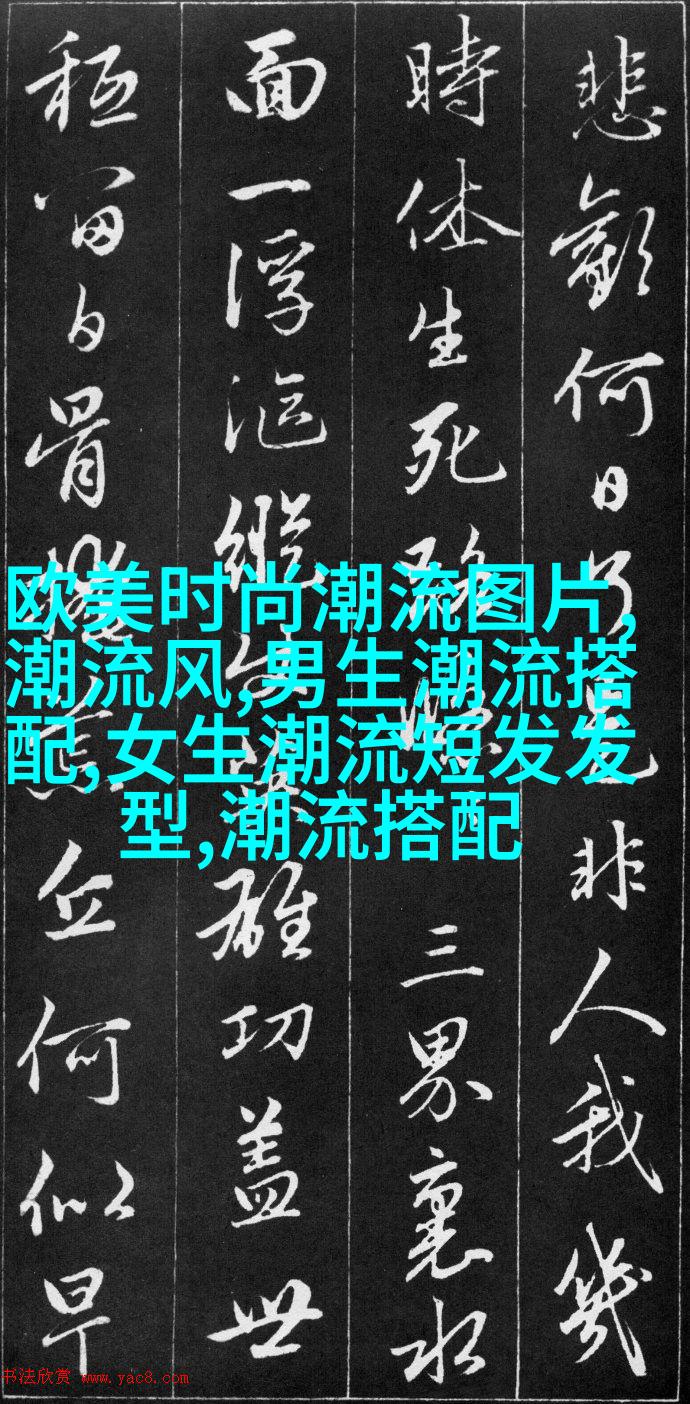 悲歡何日了是非人我幾
時休生死路 三界裏水
面一浮漚縱使英雄功蓋世
秪留白骨掩荒丘何似早
欧美时尚潮流图片,
潮流风,男生潮流搭
配,女生潮流短发发
型,潮流搭配
书法欣赏 www.yac8.com